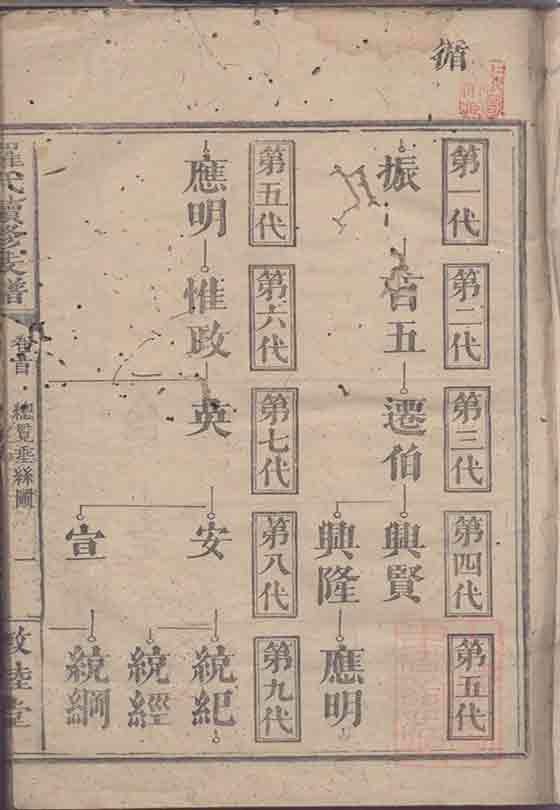 循
第一代
第二代
第三代
第四代
第五代
振
言五
遷伯
興賢
興隆
應明
第五代
第六代
第七代
第八代
第九代
應明
惟政
英
安
宣
統紀
統經
統綱
羅氏續修族譜
卷首
總覽垂絲圖
一
敦睦堂